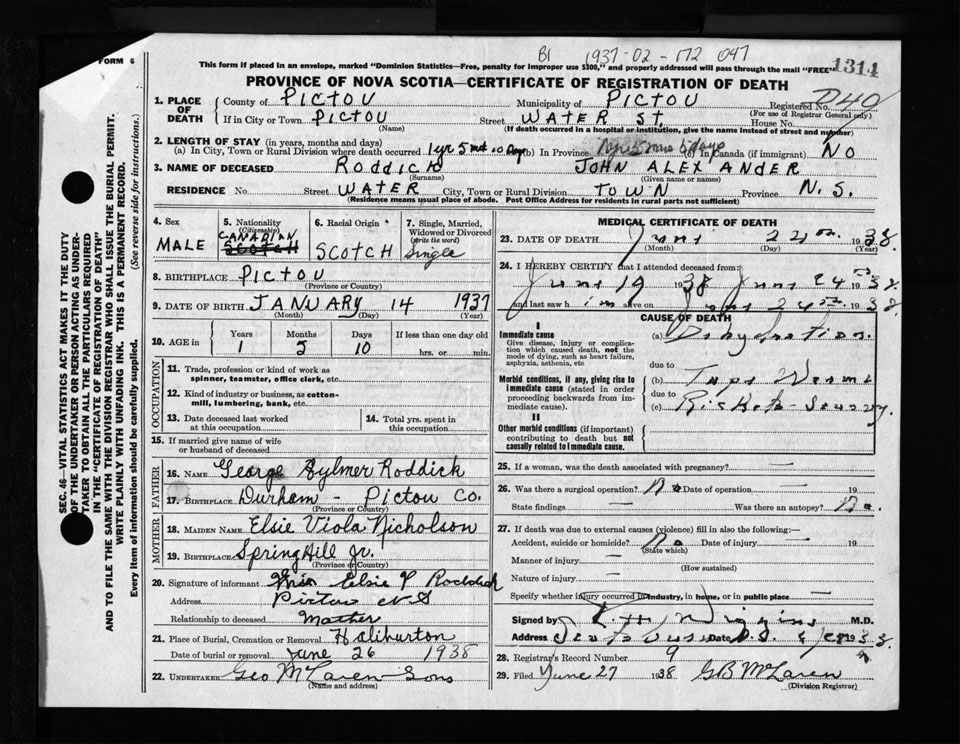 B1 1937-02-172 047
FORM 6
This form if placed in an envelope, marked "Dominion Statistics—Free, penalty for improper use $300," and properly addressed will pass through the mail "FREE"
1314
PROVINCE OF NOVA SCOTIA—CERTIFICATE OF REGISTRATION OF DEATH
1. PLACE OF DEATH
County of PICTOU Municipality of PICTOU Registered No.
(For use of Registrar General only)
If in City or Town PICTOU Street WATER ST. House No.
(Name) (If death occurred in a hospital or institution, give the name instead of street and number)
2. LENGTH OF STAY (in years, months and days)
(a) In City, Town or Rural Division where death occurred 1 yr 5 mos 10 Days (b) In Province (c) In Canada (if immigrant) NO
3. NAME OF DECEASED RODDICK JOHN ALEXANDER
(Surname) (Given name or names)
RESIDENCE No. Street WATER City, Town or Rural Division TOWN Province N.S.
(Residence means usual place of abode. Post Office Address for residents in rural parts not sufficient)
4. Sex MALE
5. Nationality (Citizenship) CANADIAN SCOTCH
6. Racial Origin SCOTCH
7. Single, Married, Widowed or Divorced (write the word) Single
8. BIRTHPLACE PICTOU
(Province or Country)
9. DATE OF BIRTH JANUARY 14 1937
(Month) (Day) (Year)
10. AGE in Years Months Days If less than one day old
1 5 10 hrs. or min.
OCCUPATION
11. Trade, profession or kind of work as spinner, teamster, office clerk, etc.
12. Kind of industry or business, as cotton-mill, lumbering, bank, etc.
13. Date deceased last worked at this occupation
14. Total yrs. spent in this occupation
15. If married give name of wife or husband of deceased
FATHER
16. NAME George Sylmer Roddick
17. BIRTHPLACE Durham - Pictou Co.
(Province or Country)
MOTHER
18. MAIDEN NAME Elsie Viola Nicholson
19. BIRTHPLACE SpringHill Jr.
(Province or Country)
20. Signature of informant Mrs Elsie V Roddick
Address Pictou N S
Relationship to deceased Mother
21. Place of Burial, Cremation or Removal Haliburton
Date of burial or removal June 26 1938
22. UNDERTAKER Geo McLaren Sons
(Name and address)
MEDICAL CERTIFICATE OF DEATH
23. DATE OF DEATH June 24th 1938
(Month) (Day) (Year)
24. I HEREBY CERTIFY that I attended deceased from:
June 19 1938 June 24th 1938
and last saw him alive on June 24th 1938
CAUSE OF DEATH
I
Immediate cause
Give disease, injury or complication which caused death, not the mode of dying, such as heart failure, asphyxia, asthenia, etc
(a) Dehydration.
due to
Morbid conditions, if any, giving rise to immediate cause (stated in order proceeding backwards from immediate cause).
(b) Tape Worms
due to
(c) Rickets-Scurvy.
II
Other morbid conditions (if important) contributing to death but not causally related to immediate cause.
25. If a woman, was the death associated with pregnancy? —
26. Was there a surgical operation? No Date of operation — 19
State findings — Was there an autopsy? No.
27. If death was due to external causes (violence) fill in also the following:—
Accident, suicide or homicide? No Date of injury — 19
(State which)
Manner of injury —
(How sustained)
Nature of injury —
Specify whether injury occurred in industry, in home, or in public place —
Signed by Wiggins M.D.
Address Date 1938
28. Registrar's Record Number 9
29. Filed June 27 1938 GB McLaren
(Division Registrar)
SEC. 46—VITAL STATISTICS ACT MAKES IT THE DUTY
OF THE UNDERTAKER OR PERSON ACTING AS UNDERTAKER TO OBTAIN ALL THE PARTICULARS REQUIRED
IN THE "CERTIFICATE OF REGISTRATION OF DEATH"
AND TO FILE THE SAME WITH THE DIVISION REGISTRAR WHO SHALL ISSUE THE BURIAL PERMIT.
WRITE PLAINLY WITH UNFADING INK. THIS IS A PERMANENT RECORD.
Every item of information should be carefully supplied. (See reverse side for instructions.)